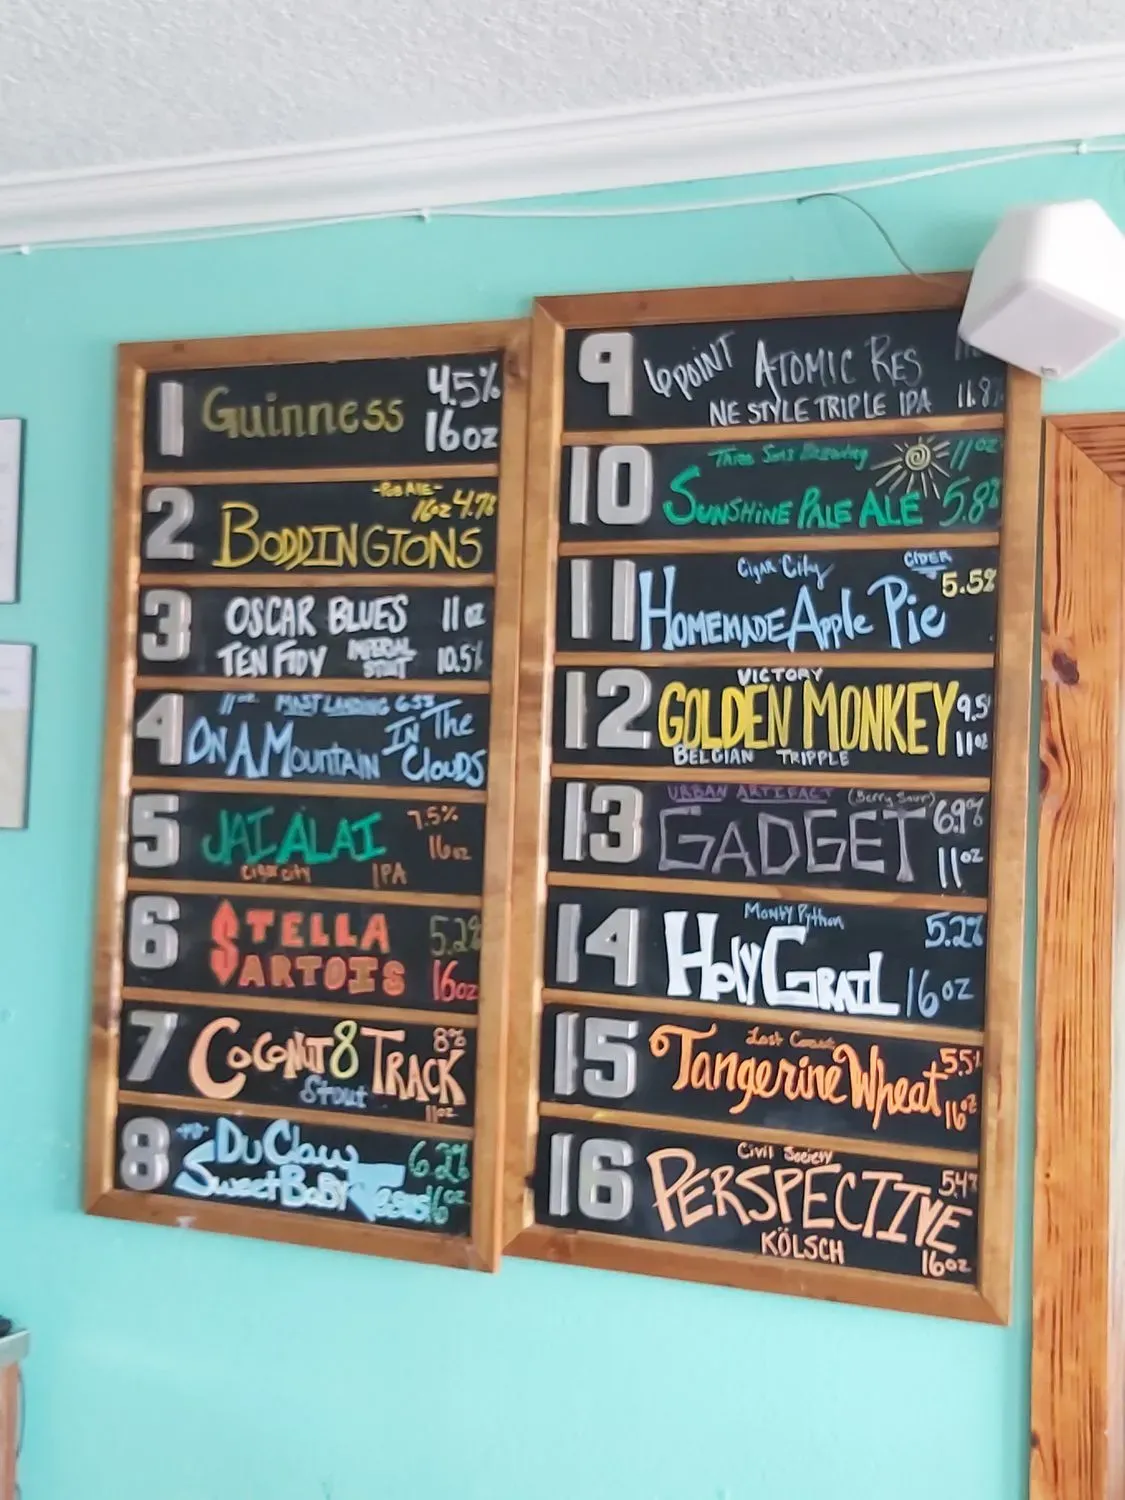 1 Guinness 4.5%
16oz
2 -PUB ALE-
16oz 4.7%
BODDINGTONS
3 OSCAR BLUES 11oz
TEN FIDY IMPERIAL STOUT 10.5%
4 11oz MAST LANDING 6.5%
ON A MOUNTAIN IN THE CLOUDS
5 JAI ALAI 7.5%
16oz
Cigar City IPA
6 STELLA 5.2%
ARTOIS 16oz
7 COCONUT 8 TRACK 8%
Stout
11oz
8 DuClaw 6.2%
Sweet Baby Jesus 16oz
9 6point ATOMIC RES
NE STYLE TRIPLE IPA 11.8%
10 Three Sons Brewing 11oz
SUNSHINE PALE ALE 5.8%
11 Cigar City CIDER
HOMEMADE Apple Pie 5.5%
12 VICTORY
GOLDEN MONKEY 9.5%
11oz
BELGIAN TRIPPLE
13 URBAN ARTIFACT (Berry Sour)
GADGET 6.9%
11oz
14 Monty Python 5.2%
HOLY GRAIL 16oz
15 Lost Coast
Tangerine Wheat 5.5%
16oz
16 Civil Society
PERSPECTIVE 5.4%
KÖLSCH
16oz